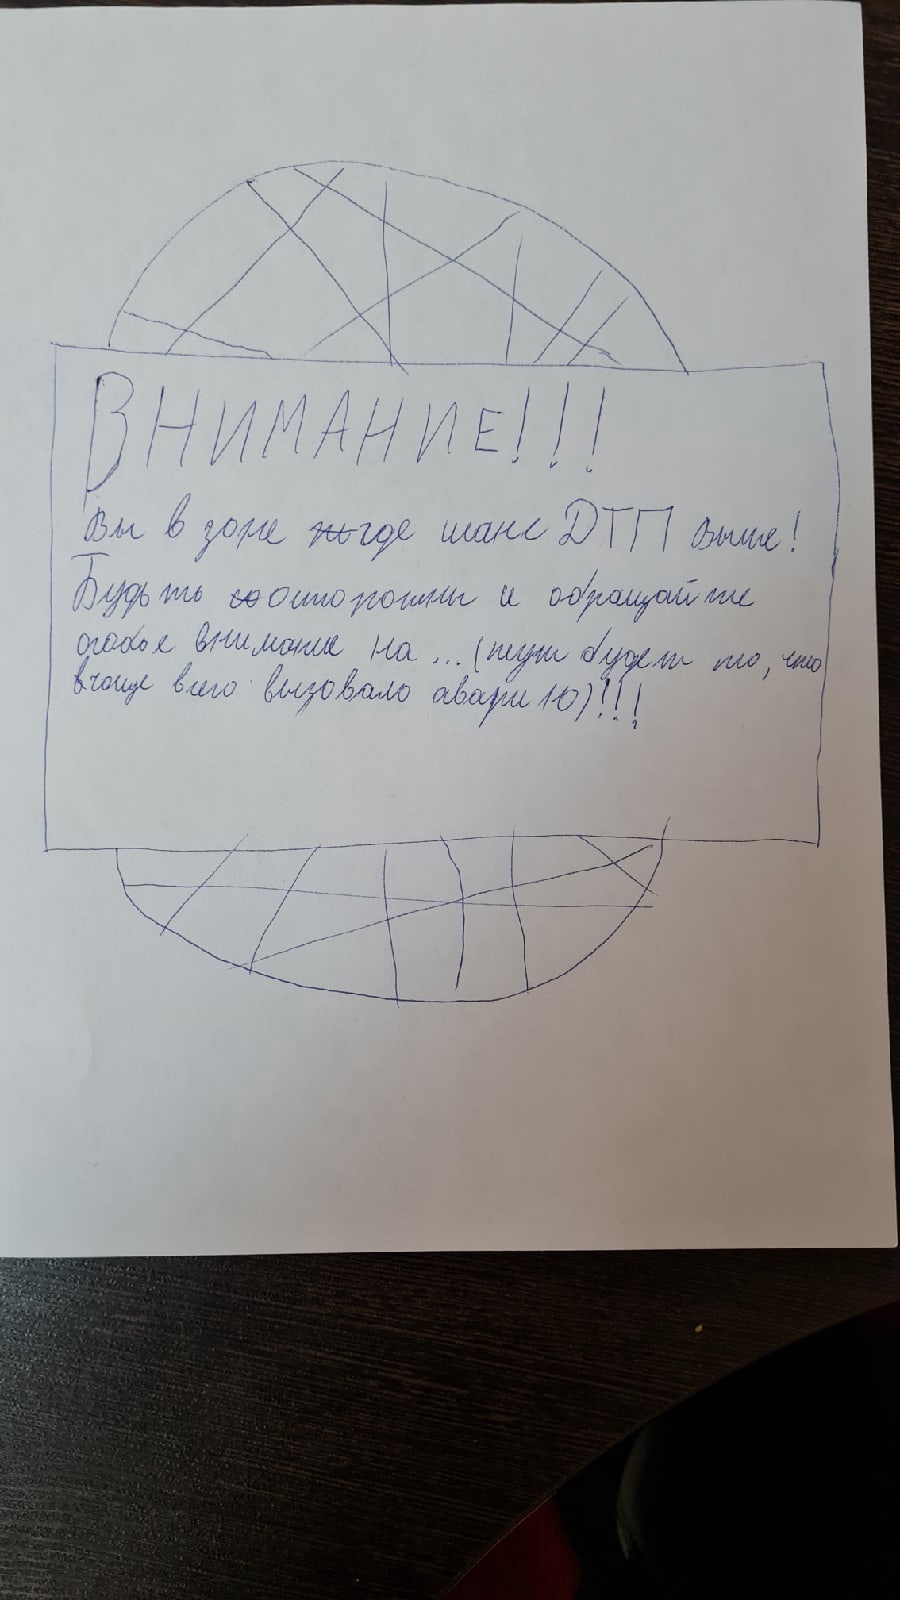 ВНИМАНИЕ!!!
Вы в зоне где шанс ДТП выше!
Будьте осторожны и обращайте
особое внимание на ... (тут будет то, что
чаще всего вызовало аварию)!!!